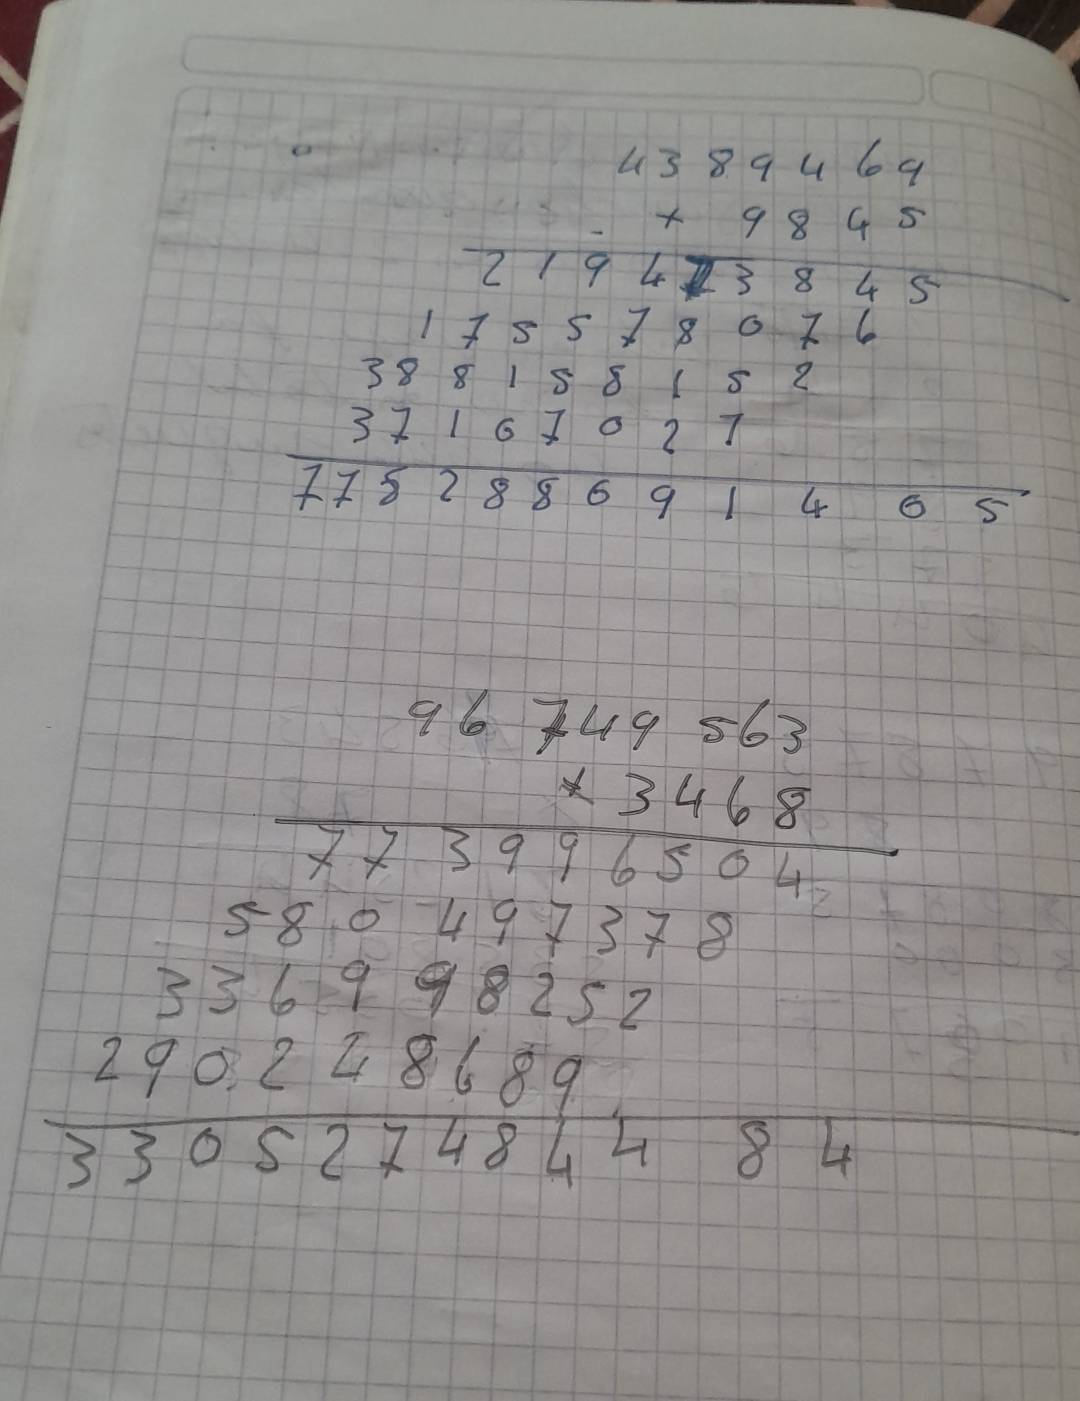 4389469
× 9845
219473845
175578076
388158152
37167027
775288691405
96 749 563
× 3468
773996504
580 497378
336998252
290248689
330527484484